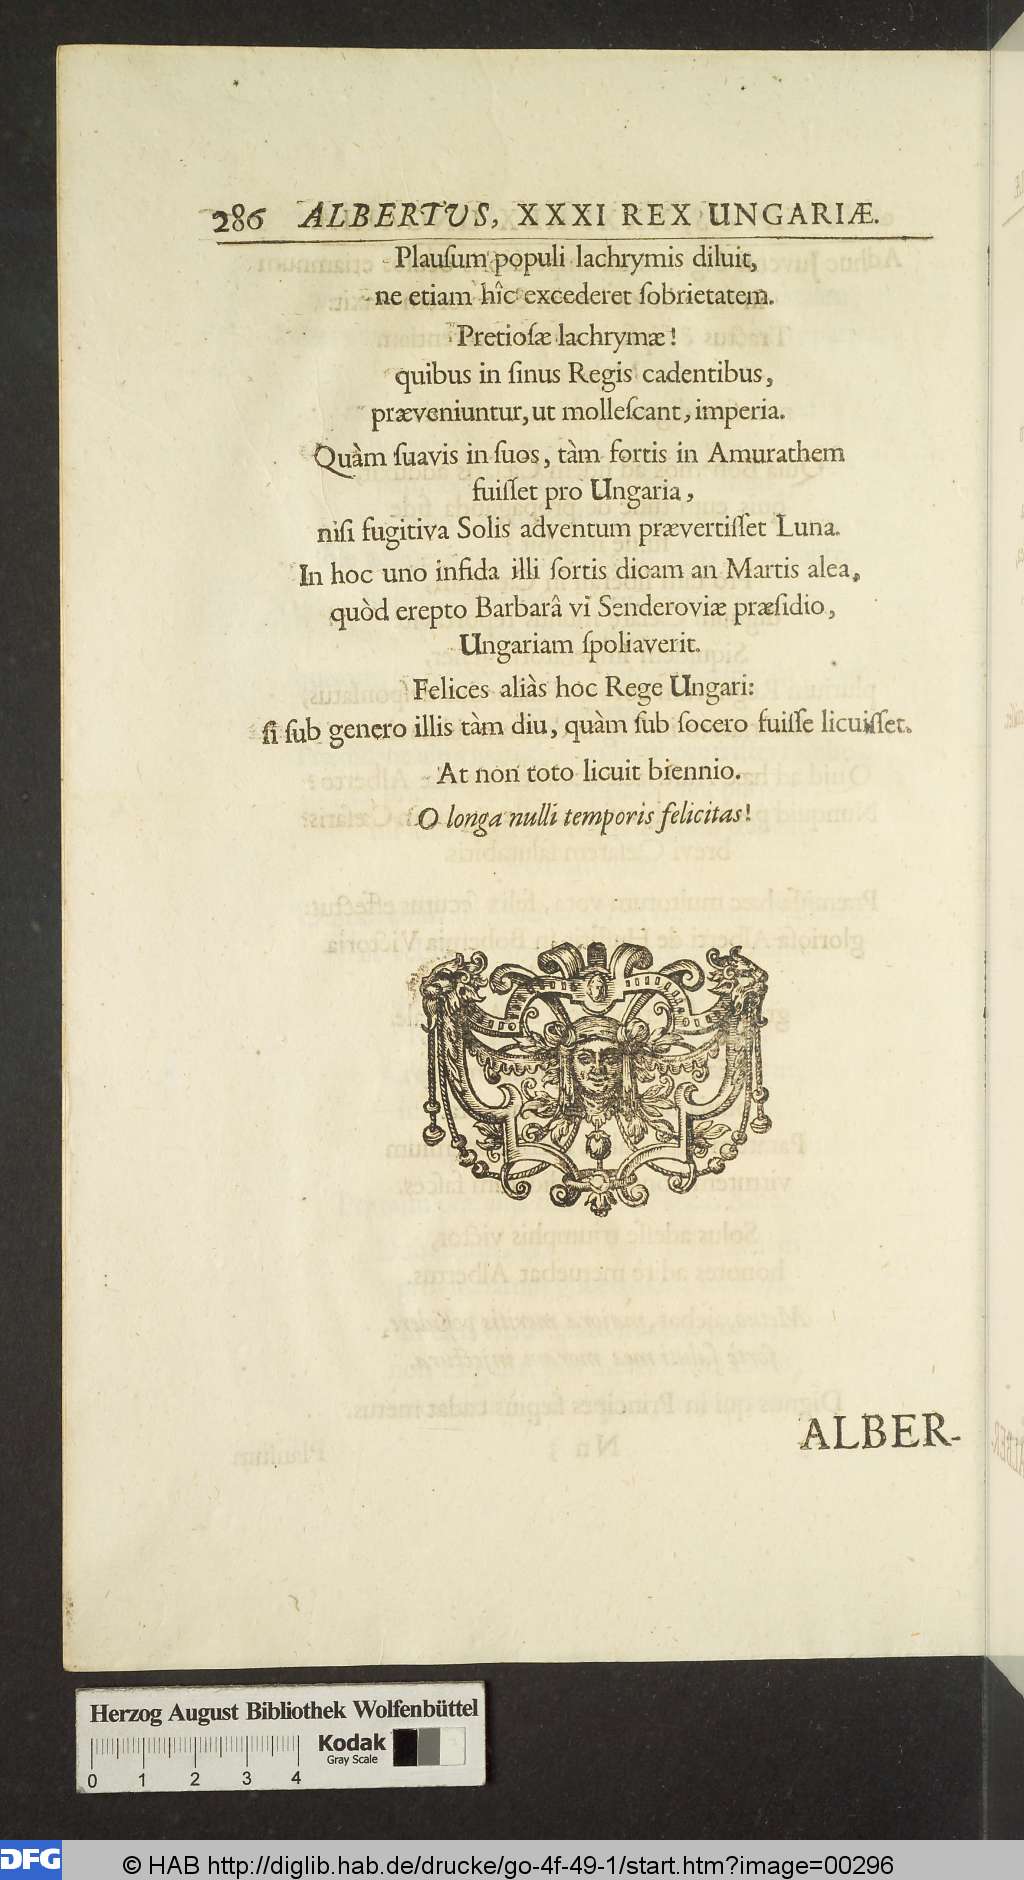 286 ALBERTUS, XXXI REX UNGARIÆ.
Plauſum populi lachrymis diluit,
ne etiam hîc excederet ſobrietatem.
Pretioſæ lachrymæ!
quibus in ſinus Regis cadentibus,
præveniuntur, ut molleſcant, imperia.
Quàm ſuavis in ſuos, tàm fortis in Amurathem
fuiſſet pro Ungaria,
niſi fugitiva Solis adventum prævertiſſet Luna.
In hoc uno infida illi ſortis dicam an Martis alea,
quòd erepto Barbarâ vi Senderoviæ præſidio,
Ungariam ſpoliaverit.
Felices aliàs hoc Rege Ungari:
ſi ſub genero illis tàm diu, quàm ſub ſocero fuiſſe licuiſſet.
At non toto licuit biennio.
O longa nulli temporis felicitas!
ALBER-
Herzog August Bibliothek Wolfenbüttel
Kodak
Gray Scale
0 1 2 3 4
DFG
© HAB http://diglib.hab.de/drucke/go-4f-49-1/start.htm?image=00296